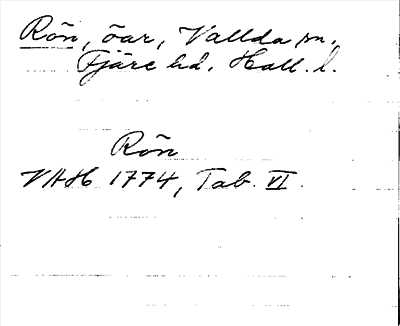 Rön, öar, Vallda sn.
Fjäre hd. Hall. l.
Rön
VAH 1774, Tab. VI.